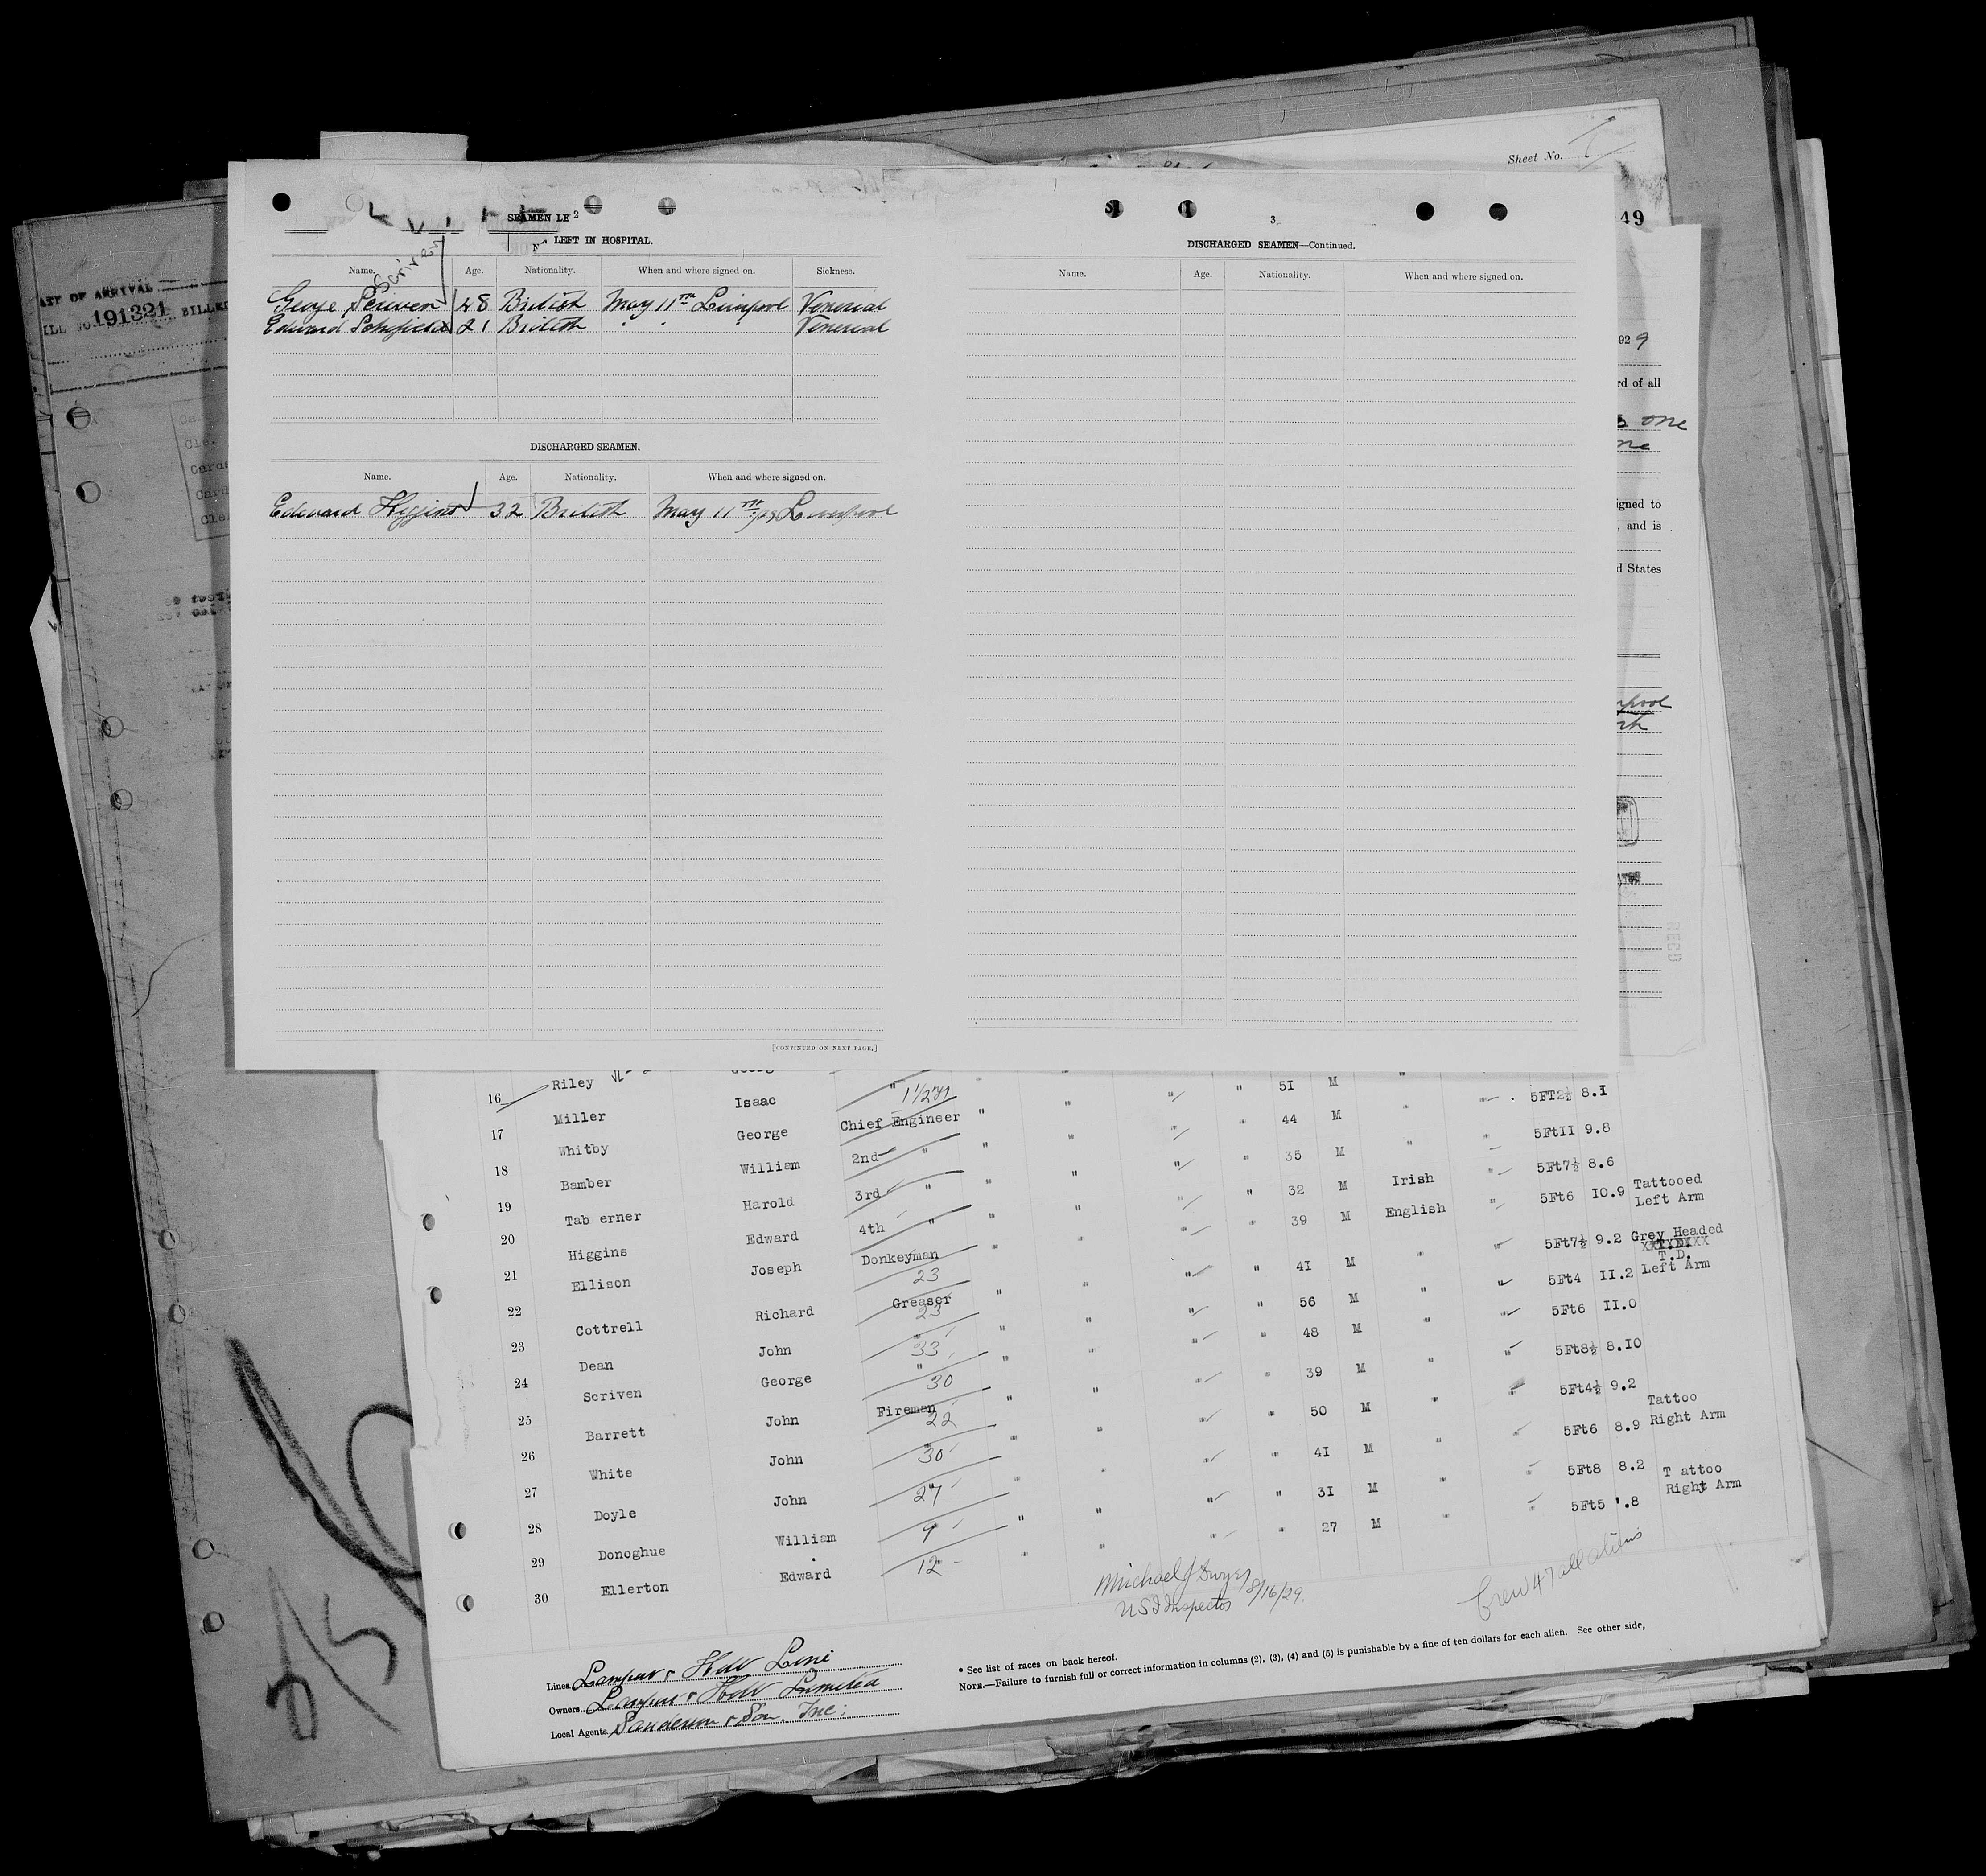 Sheet No.
49
DATE OF ARRIVAL
191321 BILLED
SEAMEN LE 2
LEFT IN HOSPITAL.
Name. Age. Nationality. When and where signed on. Sickness.
Scriven
George Scriven 48 British May 11th Liverpool Venereal
Edward Schofield 21 British " " " Venereal
DISCHARGED SEAMEN.
Name. Age. Nationality. When and where signed on.
Edward Higgins 32 British May 11th /29 Liverpool
[CONTINUED ON NEXT PAGE.]
3
DISCHARGED SEAMEN—Continued.
Name. Age. Nationality. When and where signed on.
929
rd of all
one
igned to
, and is
d States
RECD
16 Riley Isaac " 1 1/2 " " " " 51 M " " 5FT2½ 8.I
17 Miller George Chief Engineer " " " " 44 M " " 5FtII 9.8
18 Whitby William 2nd " " " " " 35 M " " 5Ft7½ 8.6
19 Bamber Harold 3rd " " " " " 32 M Irish " 5Ft6 IO.9 Tattooed Left Arm
20 Tab erner Edward 4th " " " " " 39 M English "
21 Higgins Joseph Donkeyman " " " " 4I M " " 5Ft7½ 9.2 Grey Headed
22 Ellison Richard 23 Greaser " " " " 56 M " " 5Ft4 II.2 T.D. Left Arm
23 Cottrell John 23 " " " " " 48 M " " 5Ft6 II.0
24 Dean George 33 " " " " " 39 M " " 5Ft8½ 8.IO
25 Scriven John 30 Fireman " " " " 50 M " " 5Ft4½ 9.2
26 Barrett John 22 " " " " 4I M " " 5Ft6 8.9 Tattoo Right Arm
27 White John 30 " " " " 3I M " " 5Ft8 8.2
28 Doyle William 27 " " " " 27 M " " 5Ft5 .8 T attoo Right Arm
29 Donoghue Edward 9
30 Ellerton 12
Michael J Dwyer
US I Inspector 8/16/29.
Crew 47 all aliens
Lines Lamport & Holt Line
Owners Lamport & Holt Limited
Local Agents Sanderson & Son, Inc:
* See list of races on back hereof.
NOTE.—Failure to furnish full or correct information in columns (2), (3), (4) and (5) is punishable by a fine of ten dollars for each alien. See other side,